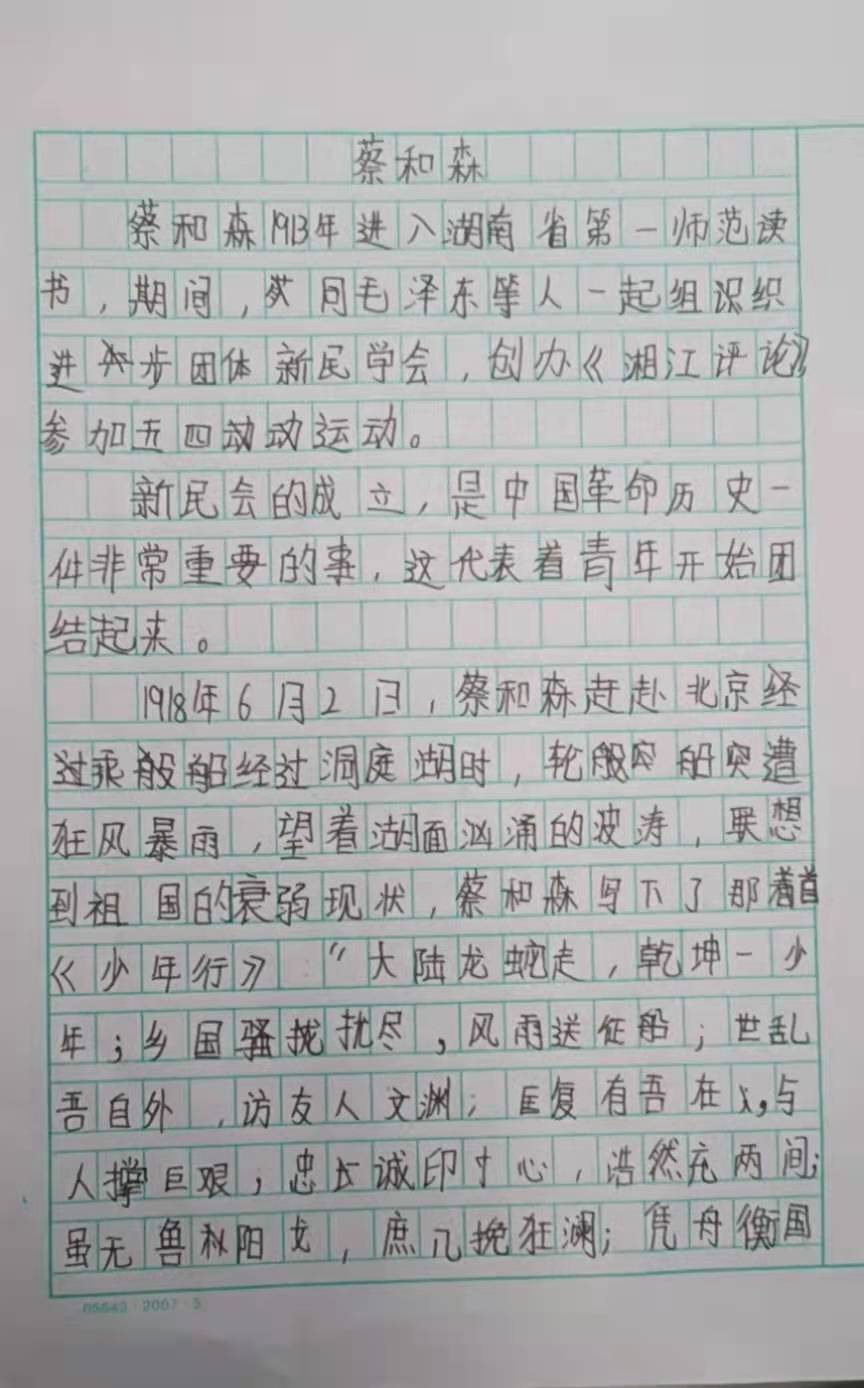 蔡和森
蔡和森1913年进入湖南省第一师范读
书，期间，同毛泽东等人一起组识织
进步团体新民学会，创办《湘江评论》
参加五四动动运动。
新民会的成立，是中国革命历史一
件非常重要的事，这代表着青年开始团
结起来。
1918年6月2日，蔡和森赶赴北京经
过乘般船经过洞庭湖时，轮船突遭
狂风暴雨，望着湖面汹涌的波涛，联想
到祖国的衰弱现状，蔡和森写下了那首
《少年行》："大陆龙蛇走，乾坤一少
年；乡国骚扰尽，风雨送征船；世乱
吾自外，访友人文渊；匡复有吾在，与
人撑巨艰；忠诚印寸心，浩然充两间；
虽无鲁阳戈，庶几挽狂澜；凭舟衡国
05643·2007·5